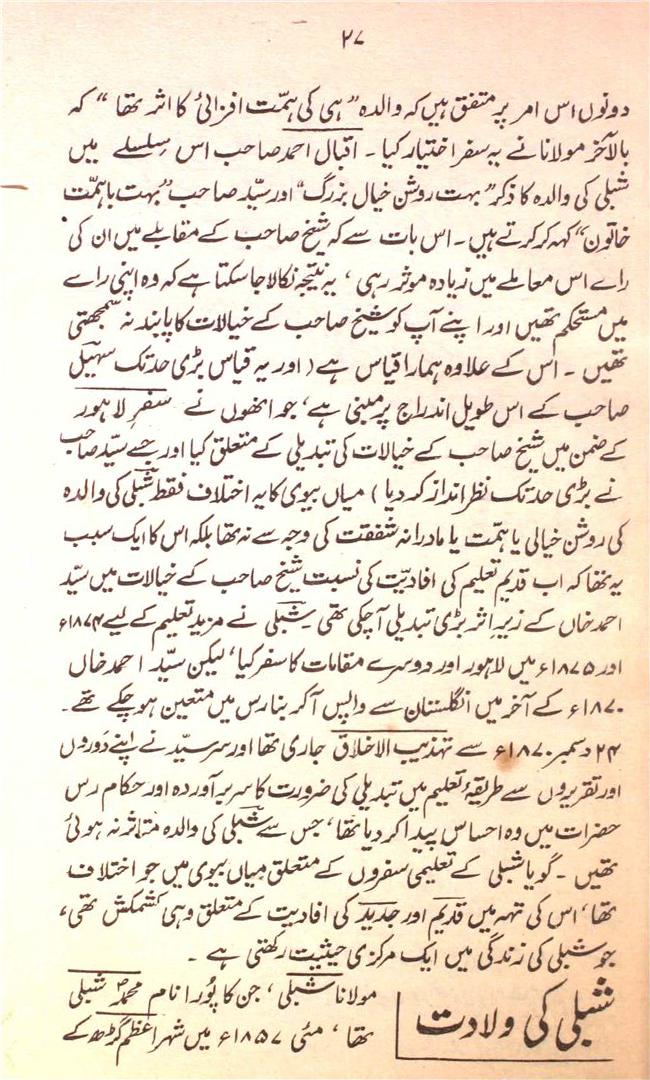 ۲۷
دونوں اس امر پر متفق ہیں کہ والدہ "ہی کی ہمّت افزائی کا اثر تھا" کہ
بالآخر مولانا نے یہ سفر اختیار کیا ۔ اقبال احمد صاحب اس سلسلے میں
شبلی کی والدہ کا ذکر "بہت روشن خیال بزرگ" اور سیّد صاحب "بہت باہمّت
خاتون" کہہ کر کرتے ہیں ۔ اس بات سے کہ شیخ صاحب کے مقابلے میں ان کی
رائے اس معاملے میں زیادہ موثر رہی ، یہ نتیجہ نکالا جا سکتا ہے کہ وہ اپنی رائے
میں مستحکم تھیں اور اپنے آپ کو شیخ صاحب کے خیالات کا پابند نہ سمجھتی
تھیں ۔ اس کے علاوہ ہمارا قیاس ہے ( اور یہ قیاس بڑی حد تک سہیل
صاحب کے اس طویل اندراج پر مبنی ہے ، جو انھوں نے سفرِ لاہور
کے ضمن میں شیخ صاحب کے خیالات کی تبدیلی کے متعلق کیا اور جسے سیّد صاحب
نے بڑی حد تک نظر انداز کر دیا ) میاں بیوی کا یہ اختلاف فقط شبلی کی والدہ
کی روشن خیالی یا ہمّت یا مادرانہ شفقت کی وجہ سے نہ تھا بلکہ اس کا ایک سبب
یہ تھا کہ اب قدیم تعلیم کی افادیّت کی نسبت شیخ صاحب کے خیالات میں سیّد
احمد خاں کے زیرِ اثر بڑی تبدیلی آچکی تھی ۔ شبلی نے مزید تعلیم کے لیے ۱۸۷۴ء
اور ۱۸۷۵ء میں لاہور اور دوسرے مقامات کا سفر کیا ، لیکن سیّد احمد خاں
۱۸۷۰ء کے آخر میں انگلستان سے واپس آکر بنارس میں متعین ہو چکے تھے ۔
۲۴ دسمبر ۱۸۷۰ء سے تہذیب الاخلاق جاری تھا اور سرسیّد نے اپنے دَوروں
اور تقریروں سے طریقۂ تعلیم میں تبدیلی کی ضرورت کا سربرآوردہ اور حکام رس
حضرات میں وہ احساس پیدا کر دیا تھا ، جس سے شبلی کی والدہ متاثر نہ ہوئی
تھیں ۔ گویا شبلی کے تعلیمی سفروں کے متعلق میاں بیوی میں جو اختلاف
تھا ، اس کی تہہ میں قدیم اور جدید کی افادیت کے متعلق وہی کشمکش تھی ،
جو شبلی کی زندگی میں ایک مرکزی حیثیت رکھتی ہے ۔
شبلی کی ولادت
مولانا شبلی ، جن کا پُورا نام محمدؐ شبلی
تھا ، مئی ۱۸۵۷ء میں شہر اعظم گڑھ کے